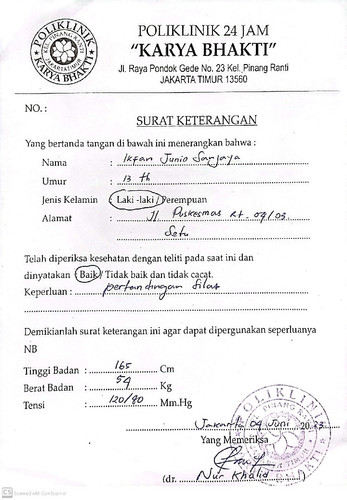 POLIKLINIK
KEL. PINANG RANTI
JAKARTA TIMUR
KARYA BHAKTI
POLIKLINIK 24 JAM
"KARYA BHAKTI"
Jl. Raya Pondok Gede No. 23 Kel. Pinang Ranti
JAKARTA TIMUR 13560
NO. :
SURAT KETERANGAN
Yang bertanda tangan di bawah ini menerangkan bahwa :
Nama : Ikfan Junio Sanjaya
Umur : 13 th
Jenis Kelamin : Laki -laki / Perempuan
Alamat : Jl Puskesmas Rt. 09/03
Setu
Telah diperiksa kesehatan dengan teliti pada saat ini dan
dinyatakan Baik / Tidak baik dan tidak cacat.
Keperluan : pertandingan silat
Demikianlah surat keterangan ini agar dapat dipergunakan seperluanya
NB
Tinggi Badan : 165 Cm
Berat Badan : 54 Kg
Tensi : 120/90 Mm.Hg
Jakarta 09 Juni 2023
Yang Memeriksa
(dr. Nur Kholid)
POLIKLINIK
BHAKTI
CS Scanned with CamScanner